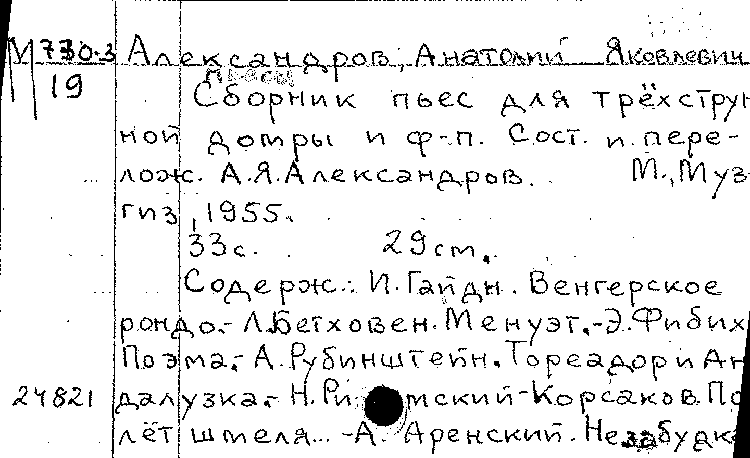 М 730-3 Александров, Анатолий Яковлевич
19 пьесы
Сборник пьес для трёхструн
ной домры и ф-п. Сост. и пере-
лож. А.Я.Александров. М., Муз-
гиз, 1955.
33с. 29см.
Содерж.: И.Гайдн. Венгерское
рондо.- Л.Бетховен. Менуэт.-Э.Фибих
Поэма.- А.Рубинштейн. Тореадор и Ан
24821 далузка.- Н.Ри мский-Корсаков. По
лёт шмеля... -А. Аренский. Незабудка